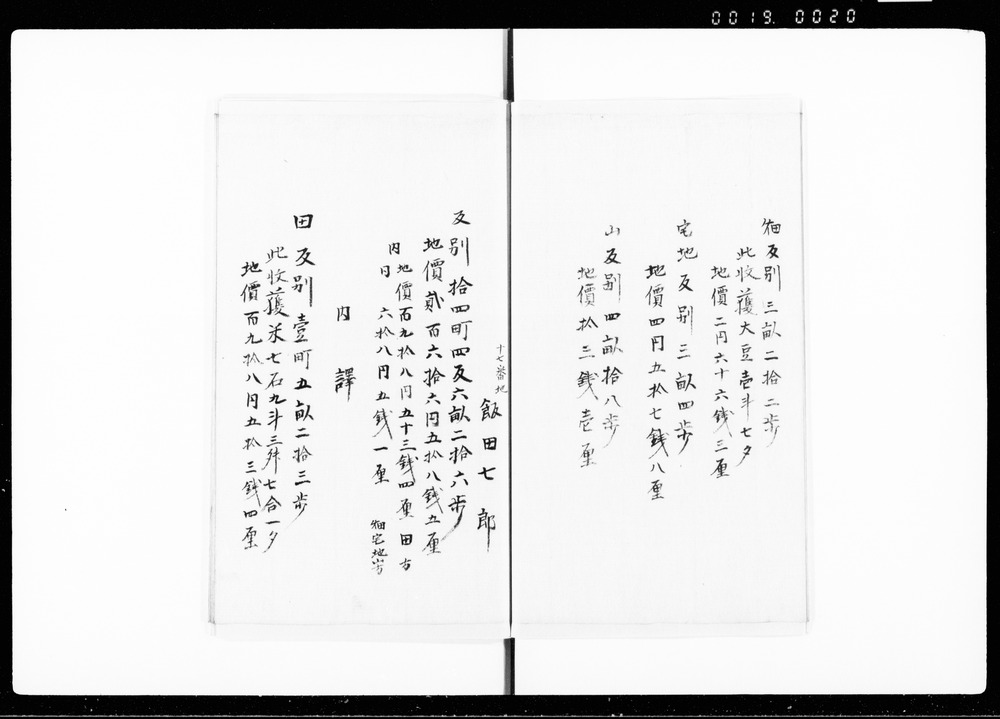 0019. 0020
畑反别三畝二拾二歩
此收獲大豆壱斗七夕
地價二円六十六錢三厘
宅地反别三畝四歩
地價四円五拾七錢八厘
山反别四畝拾八歩
地價拾三錢壱厘
十七番地
飯田七郎
反别拾四町四反六畝二拾六歩
地價貮百六拾六円五拾八錢五厘
内地價百九拾八円五十三錢四厘 田方
同 六拾八円五錢一厘 畑宅地山方
内譯
田反别壹町五畝二拾三歩
此收獲米七石九斗三舛七合一夕
地價百九拾八円五拾三錢四厘